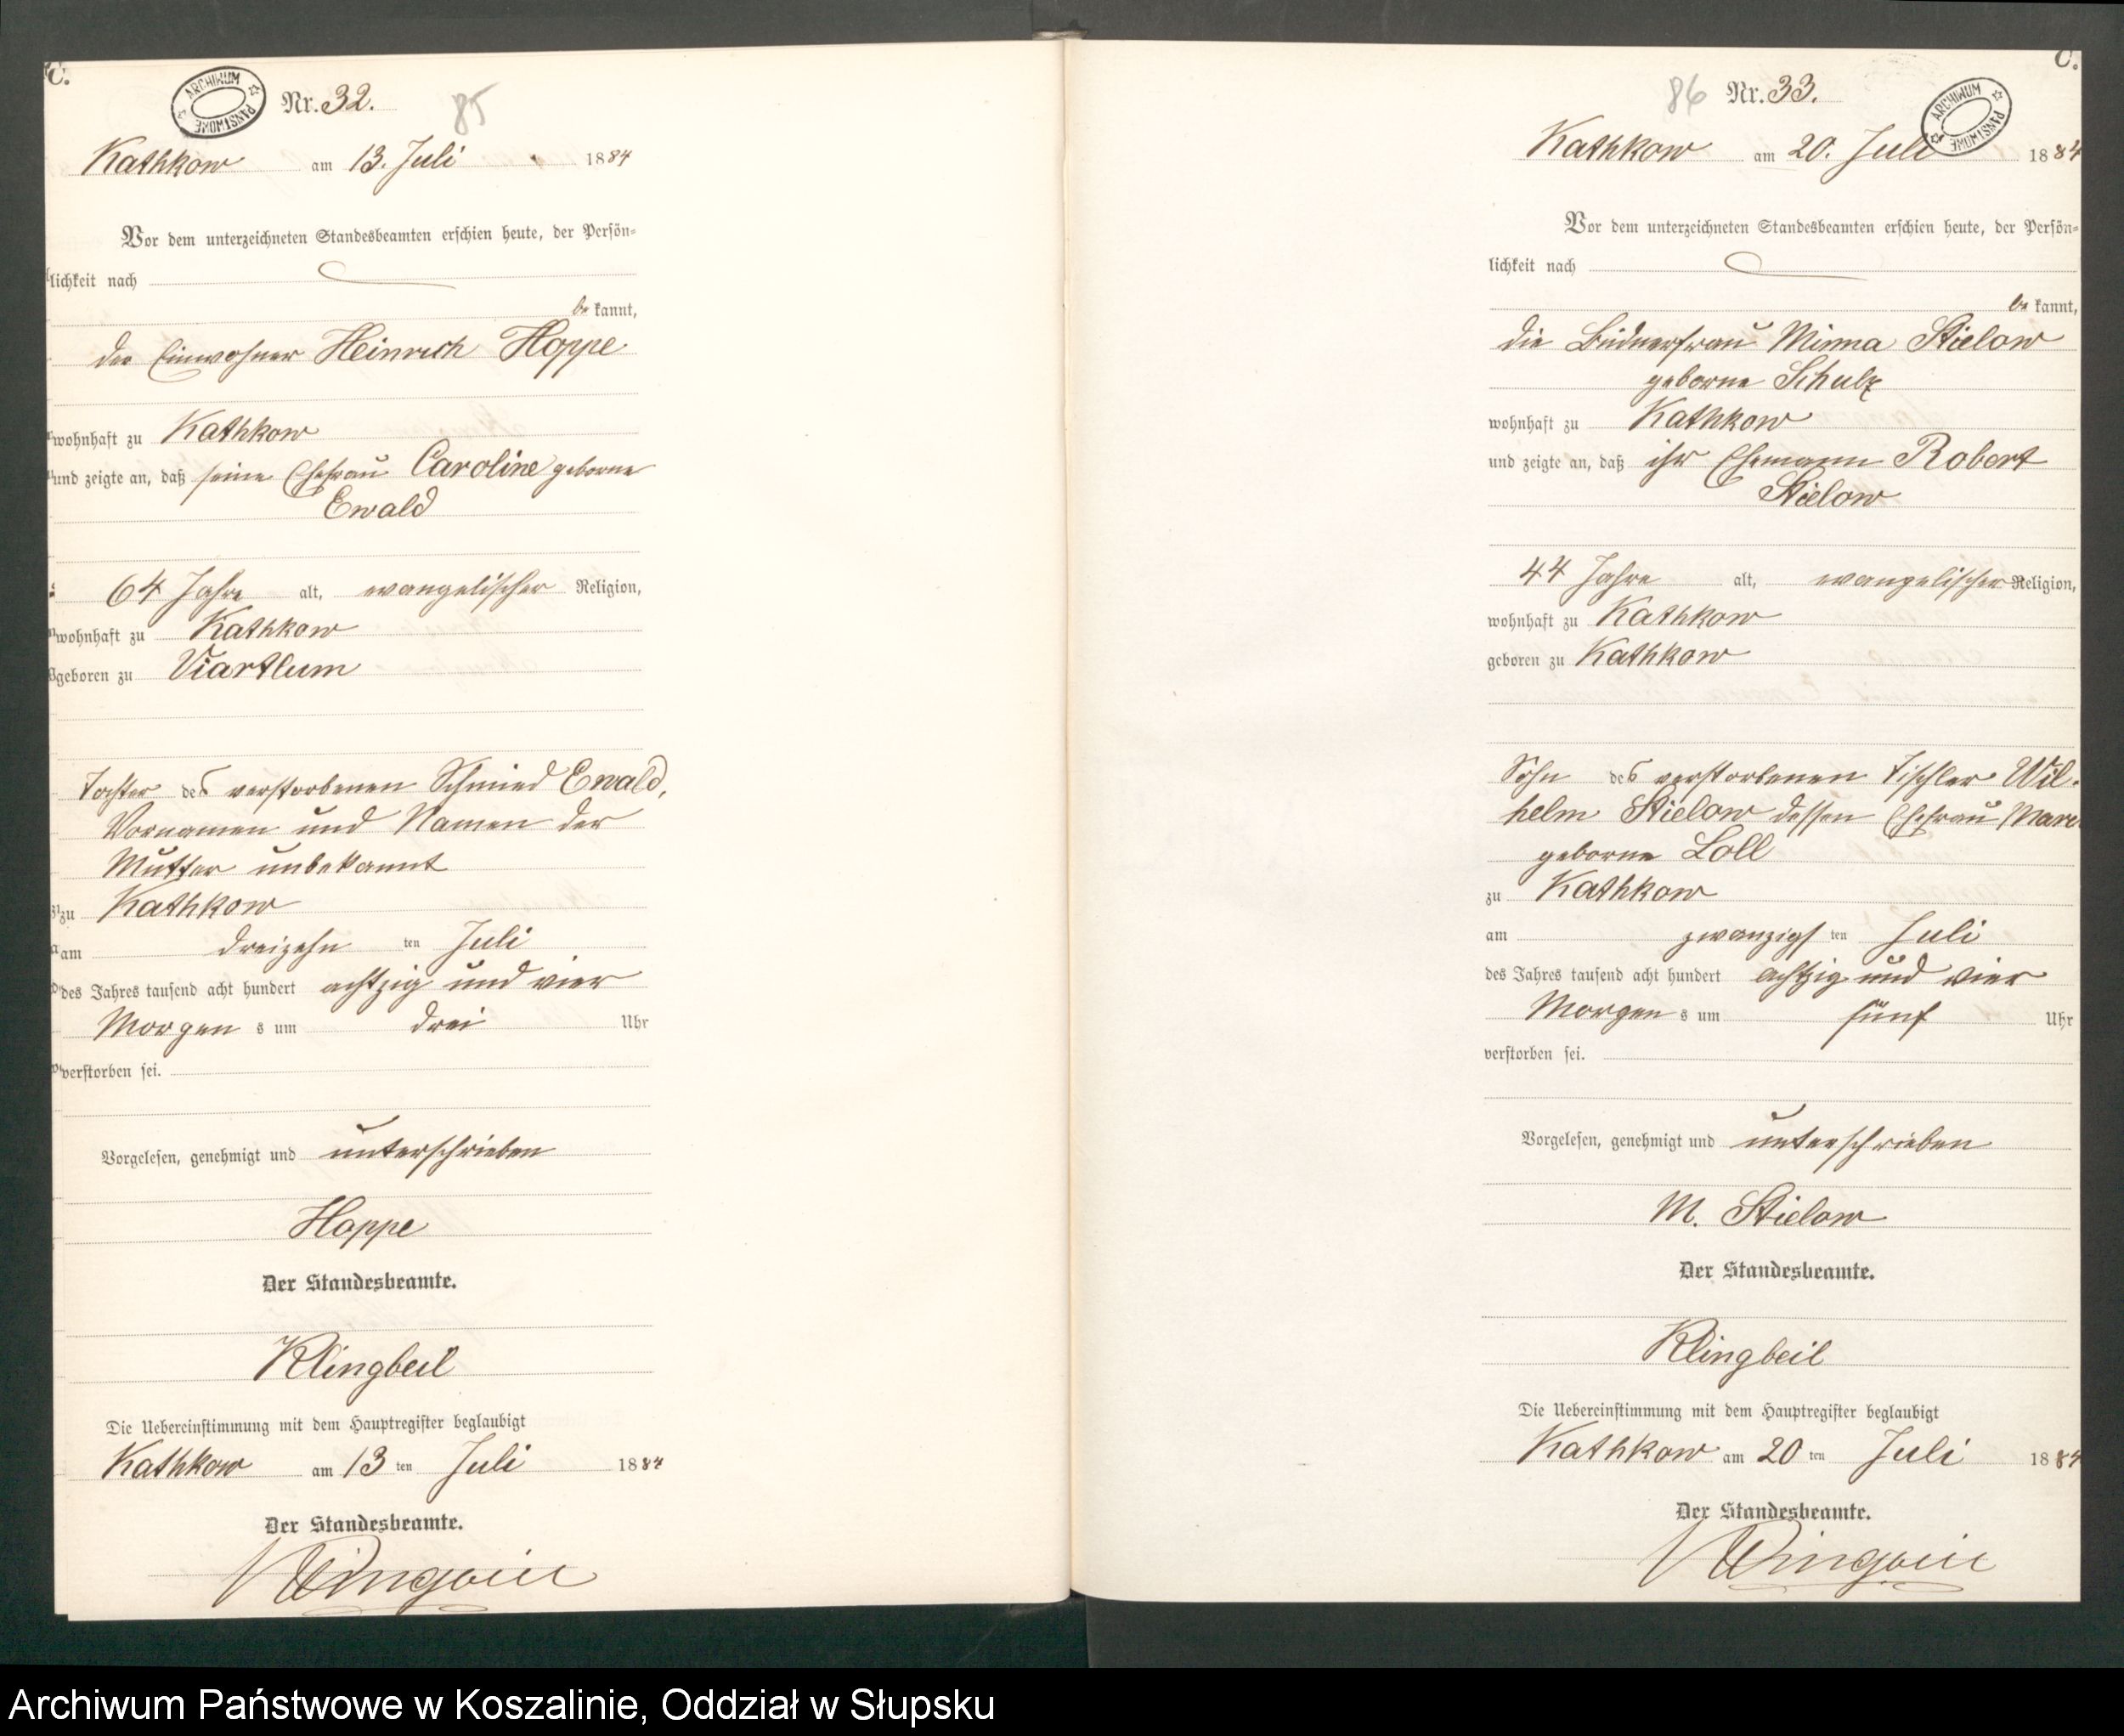 C.
ARCHIWUM PAŃSTWOWE
Nr. 32.
85
Kathkow am 13. Juli 1884
Vor dem unterzeichneten Standesbeamten erschien heute, der Persön-
lichkeit nach
be kannt,
der Einwohner Heinrich Hoppe
wohnhaft zu Kathkow
und zeigte an, daß seine Ehefrau Caroline geborne
Ewald
64 Jahre alt, evangelischer Religion,
wohnhaft zu Kathkow
geboren zu Viartlum
Tochter des verstorbenen Schmied Ewald,
Vornamen und Namen der
Mutter unbekannt
zu Kathkow
am dreizehn ten Juli
des Jahres tausend acht hundert achtzig und vier
Morgen s um drei Uhr
verstorben sei.
Vorgelesen, genehmigt und unterschrieben
Hoppe
Der Standesbeamte.
Klingbeil
Die Uebereinstimmung mit dem Hauptregister beglaubigt
Kathkow am 13 ten Juli 1884
Der Standesbeamte.
Klingbeil
C.
86
Nr. 33.
ARCHIWUM PAŃSTWOWE
Kathkow am 20. Juli 1884
Vor dem unterzeichneten Standesbeamten erschien heute, der Persön-
lichkeit nach
be kannt,
die Büdnerfrau Minna Stielow
geborne Schulz
wohnhaft zu Kathkow
und zeigte an, daß ihr Ehemann Robert
Stielow
44 Jahre alt, evangelischer Religion,
wohnhaft zu Kathkow
geboren zu Kathkow
Sohn des verstorbenen Tischler Wil-
helm Stielow dessen Ehefrau Marie
geborne Loll
zu Kathkow
am zwanzigs ten Juli
des Jahres tausend acht hundert achtzig und vier
Morgen s um fünf Uhr
verstorben sei.
Vorgelesen, genehmigt und unterschrieben
M. Stielow
Der Standesbeamte.
Klingbeil
Die Uebereinstimmung mit dem Hauptregister beglaubigt
Kathkow am 20 ten Juli 1884
Der Standesbeamte.
Klingbeil
Archiwum Państwowe w Koszalinie, Oddział w Słupsku